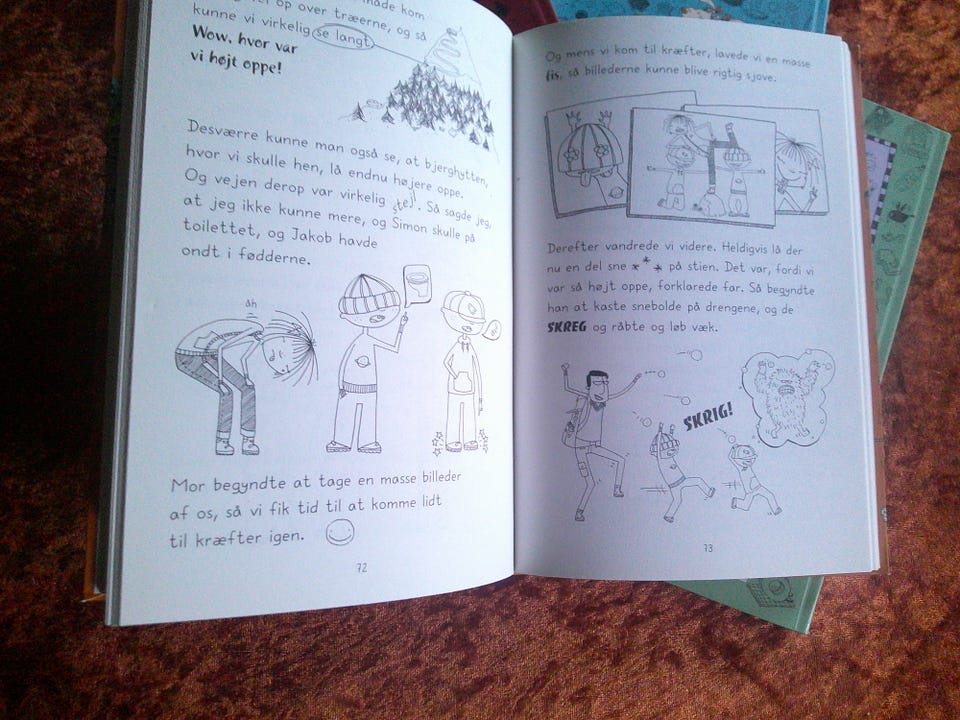 måde kom
op over træerne, og så
kunne vi virkelig se langt.
Wow, hvor var
vi højt oppe!
Desværre kunne man også se, at bjerghytten,
hvor vi skulle hen, lå endnu højere oppe.
Og vejen derop var virkelig stejl. Så sagde jeg,
at jeg ikke kunne mere, og Simon skulle på
toilettet, og Jakob havde
ondt i fødderne.
åh
Mor begyndte at tage en masse billeder
af os, så vi fik tid til at komme lidt
til kræfter igen.
72
Og mens vi kom til kræfter, lavede vi en masse
fis, så billederne kunne blive rigtig sjove.
Derefter vandrede vi videre. Heldigvis lå der
nu en del sne på stien. Det var, fordi vi
var så højt oppe, forklarede far. Så begyndte
han at kaste snebolde på drengene, og de
SKREG og råbte og løb væk.
SKRIG!
73